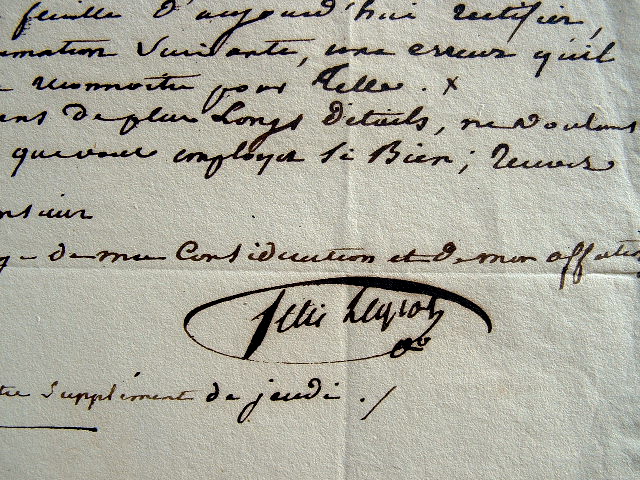 feuille d'aujourd'hui rectifier,
mation Suivante, une erreur qu'il
reconnoitre pour telle. x
ens de plus Longs détails, ne voulant
que vous employez Si Bien; recevez
nsieur
de ma Considération et de mon affection
felix
tre Supplément de jeudi ./